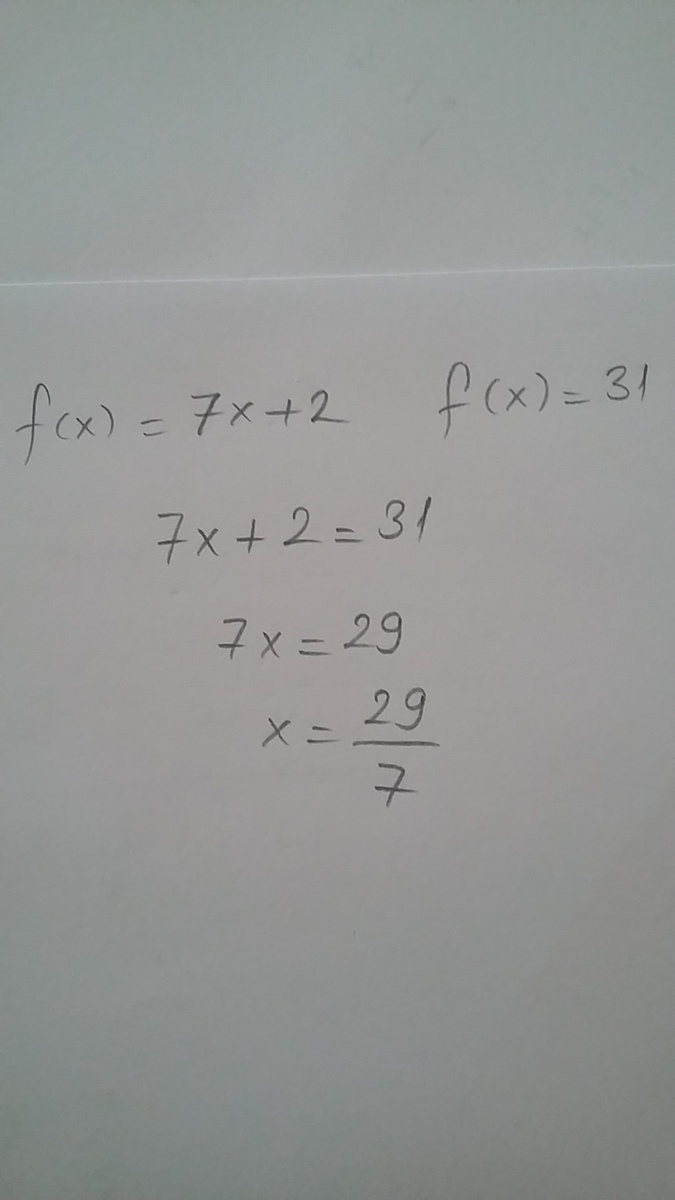 f(x) = 7x+2 f(x) = 31
7x + 2 = 31
7x = 29
x = 29/7